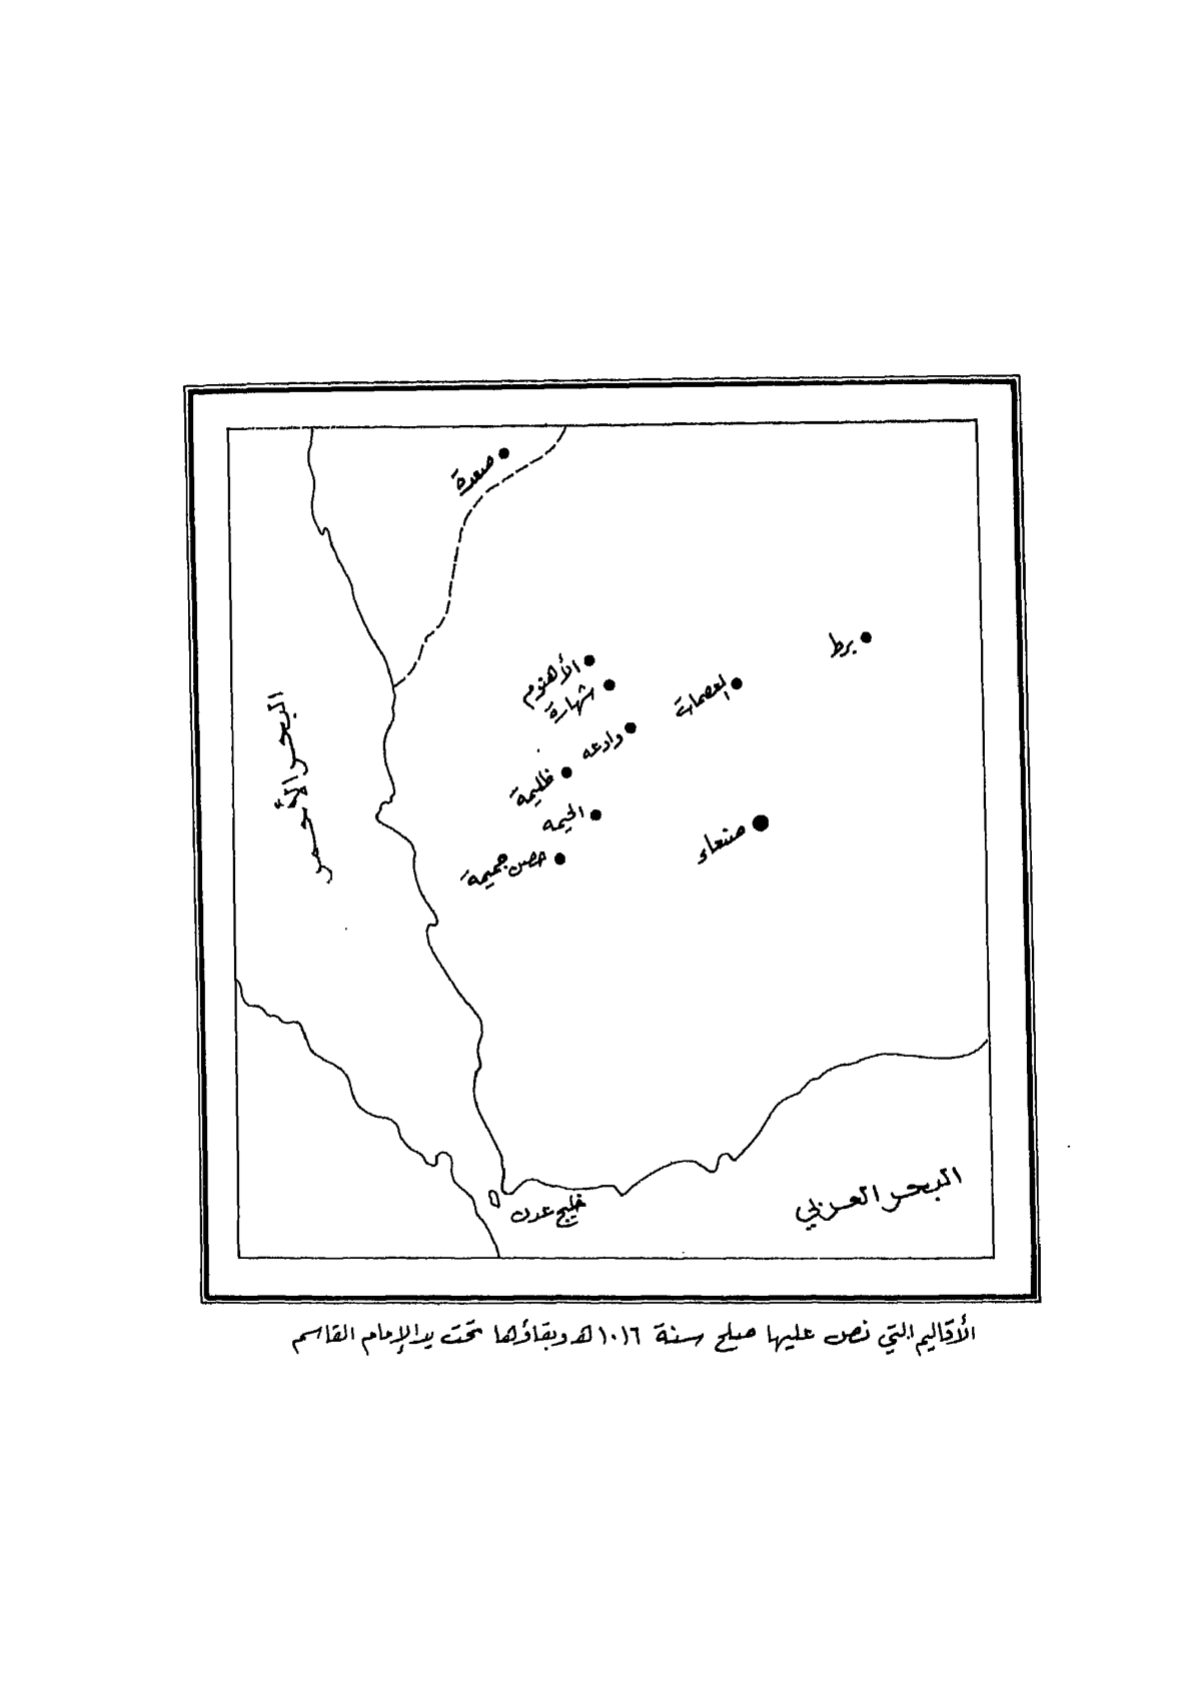 صعدة
برط
الأهنوم
شهارة
العصمات
وادعه
ظليمة
الحيمه
حصن جميمة
صنعاء
البحر الأحمر
خليج عدن
البحر العربي
الأقاليم التي نص عليها صلح سنة ١٠١٦هـ وبقاؤها تحت يد الإمام القاسم